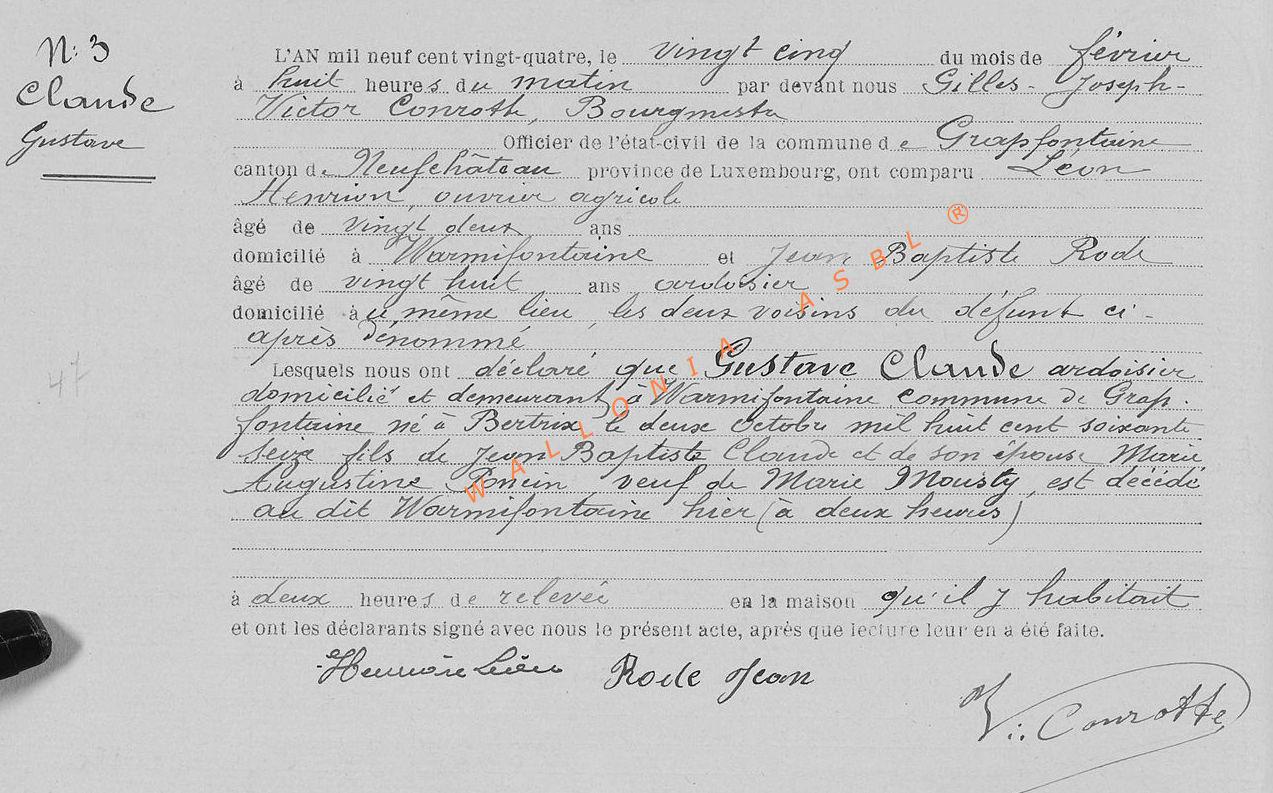 N: 3
Claude
Gustave
L'AN mil neuf cent vingt-quatre, le vingt cinq du mois de février
à huit heures du matin par devant nous Gilles-Joseph-
Victor Conrotte, Bourgmestre
Officier de l'état-civil de la commune de Grapfontaine
canton de Neufchâteau province de Luxembourg, ont comparu Léon
Henrion, ouvrier agricole
âgé de vingt deux ans
domicilié à Warmifontaine et Jean Baptiste Rode
âgé de vingt huit ans ardoisier
domicilié à u même lieu, les deux voisins du défunt ci-
après dénommé
Lesquels nous ont déclaré que Gustave Claude ardoisier
domicilié et demeurant à Warmifontaine commune de Grap.
fontaine né à Bertrix le deux octobre mil huit cent soixante
seize fils de Jean Baptiste Claude et de son épouse Marie
Augustine Poncin veuf de Marie Mousty, est décédé
au dit Warmifontaine hier (à deux heures)
à deux heures de relevée en la maison qu'il y habitait
et ont les déclarants signé avec nous le présent acte, après que lecture leur en a été faite.
Henrion Léon Rode Jean
V. Conrotte
47
WALLONIA ASBL ®